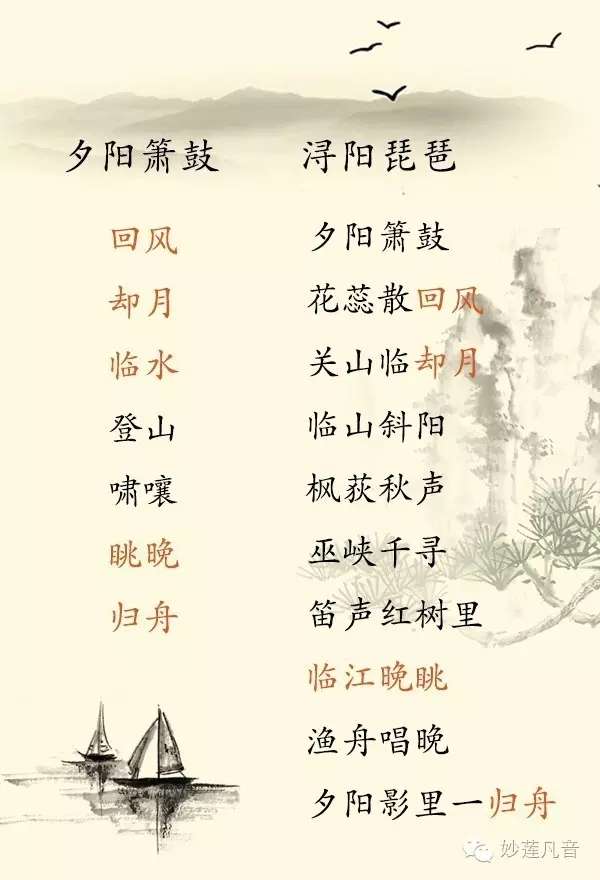 夕阳箫鼓
回风
却月
临水
登山
啸嚷
眺晚
归舟
浔阳琵琶
夕阳箫鼓
花蕊散回风
关山临却月
临山斜阳
枫荻秋声
巫峡千寻
笛声红树里
临江晚眺
渔舟唱晚
夕阳影里一归舟
妙莲凡音